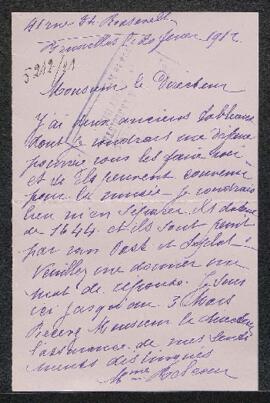 41 rue Th Roosevelt
Bruxelles le 20 fevr. 1912
5242/21
Monsieur le Directeur
J'ai deux anciens tableaux
dont je voudrais me defaire
pourrais vous les faire voir
et si ils peuvent convenir
pour le musée. Je voudrais
bien m'en séparer. Ils datent
de 1644 et ils sont peint
par van Oost et
Veuillez me donner un
mot de réponse. Je suis
ici jusqu'au 3 Mars
Recevez Monsieur le directeur
l'assurance de mes senti
ments distingués
Mme